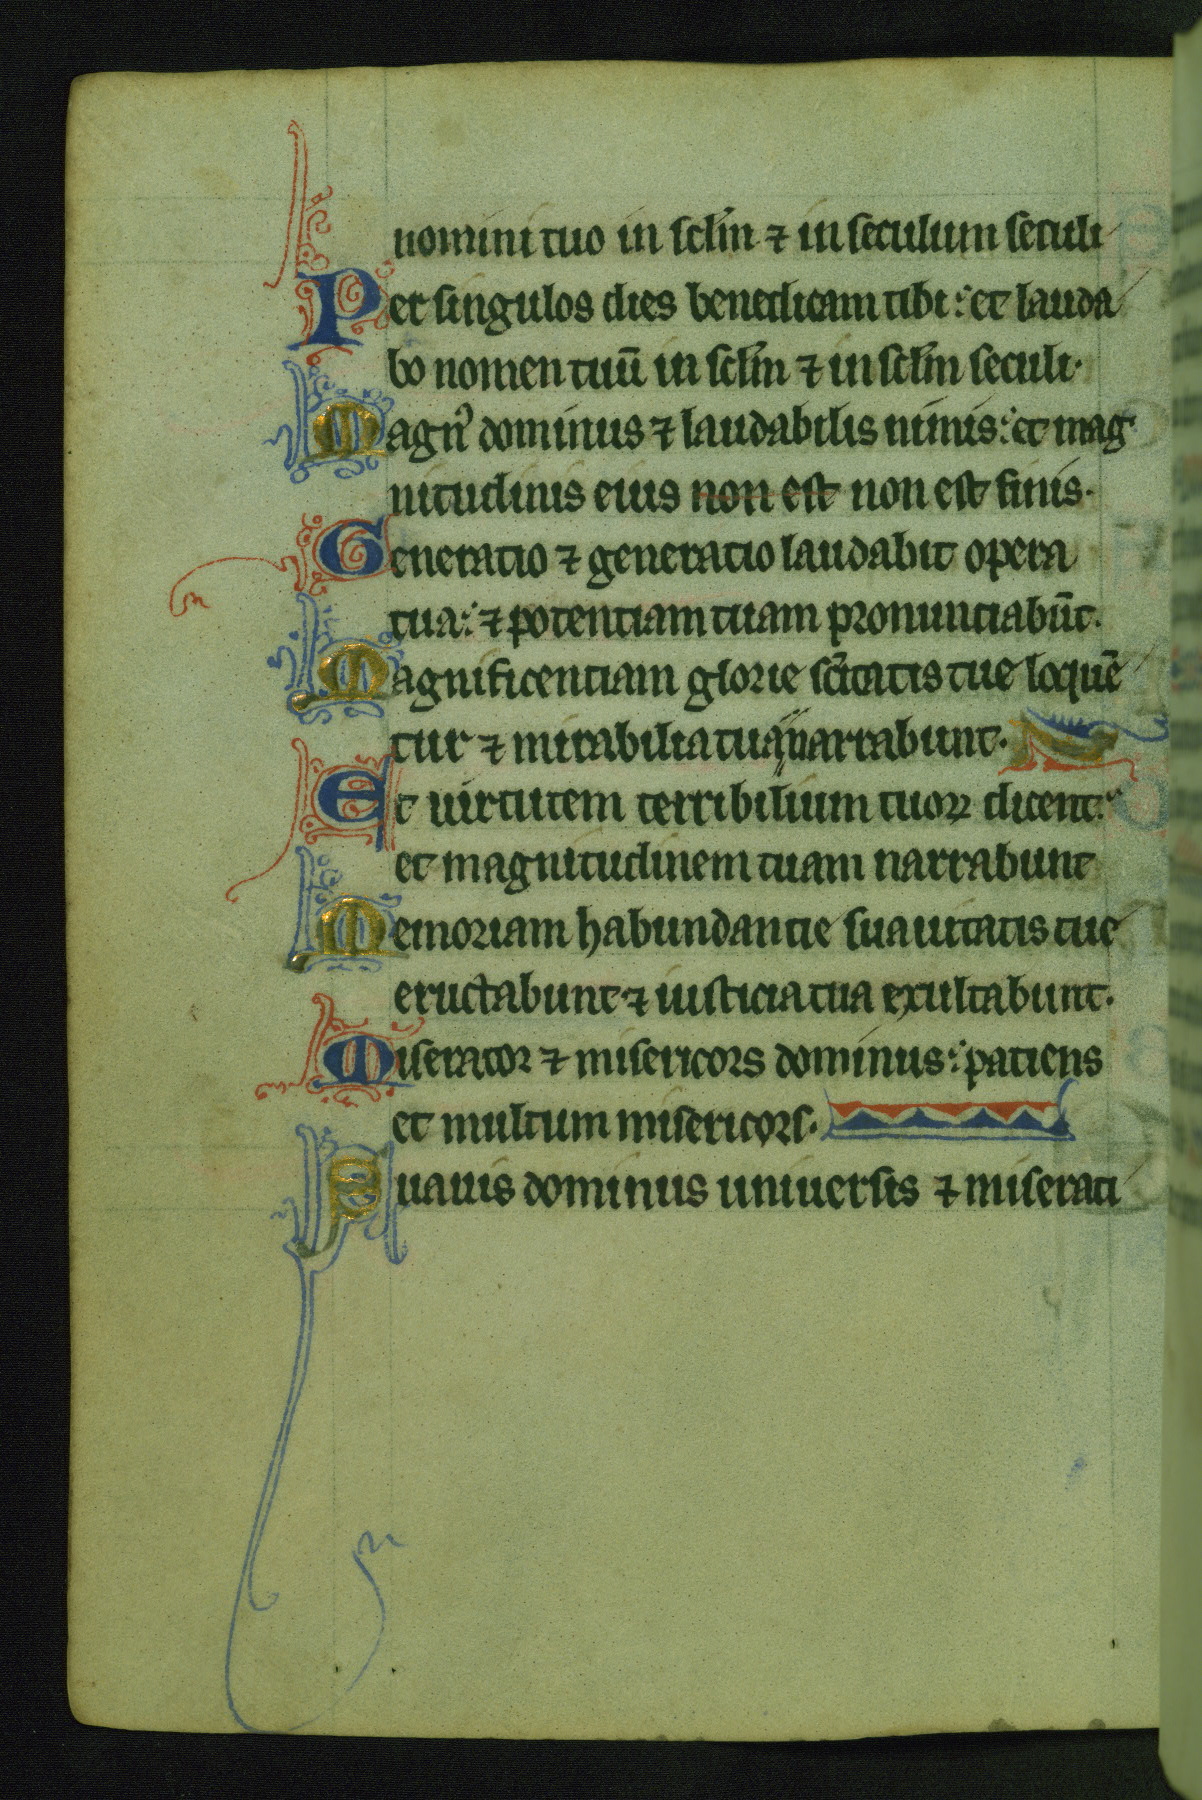 nomini tuo in sclm̄ ⁊ in seculum seculi
Per singulos dies benedicam tibi : et lauda
bo nomen tuū in sclm̄ ⁊ in sclm̄ seculi.
Magnꝰ dominus ⁊ laudabilis nimis : et mag
nitudinis eius non est non est finis.
Generatio ⁊ generatio laudabit opera
tua : ⁊ potentiam tuam pronuntiabūt.
Magnificentiam glorie sc̄itatis tue loquē
tur ⁊ mirabilia tua narrabunt.
Et uirtutem terribilium tuoꝝ dicent :
et magnitudinem tuam narrabunt
Memoriam habundantie suauitatis tue
eructabunt ⁊ iusticia tua exultabunt.
Miserator ⁊ misericors dominus : patiens
et multum misericors.
Suauis dominus uniuersis ⁊ miserati